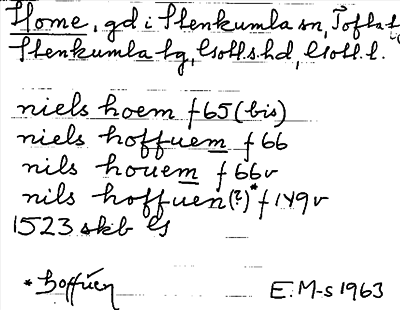 Home, gd i Stenkumla sn, Tofta t
Stenkumla tg, Gotl.s hd, Gotl. l.
niels hoem f 65 (bis)
niels hoffuem f 66
nils houem f 66v
nils hoffuen (?)* f 149v
1523 skb Gs
* hoffuen
E. M-s 1963